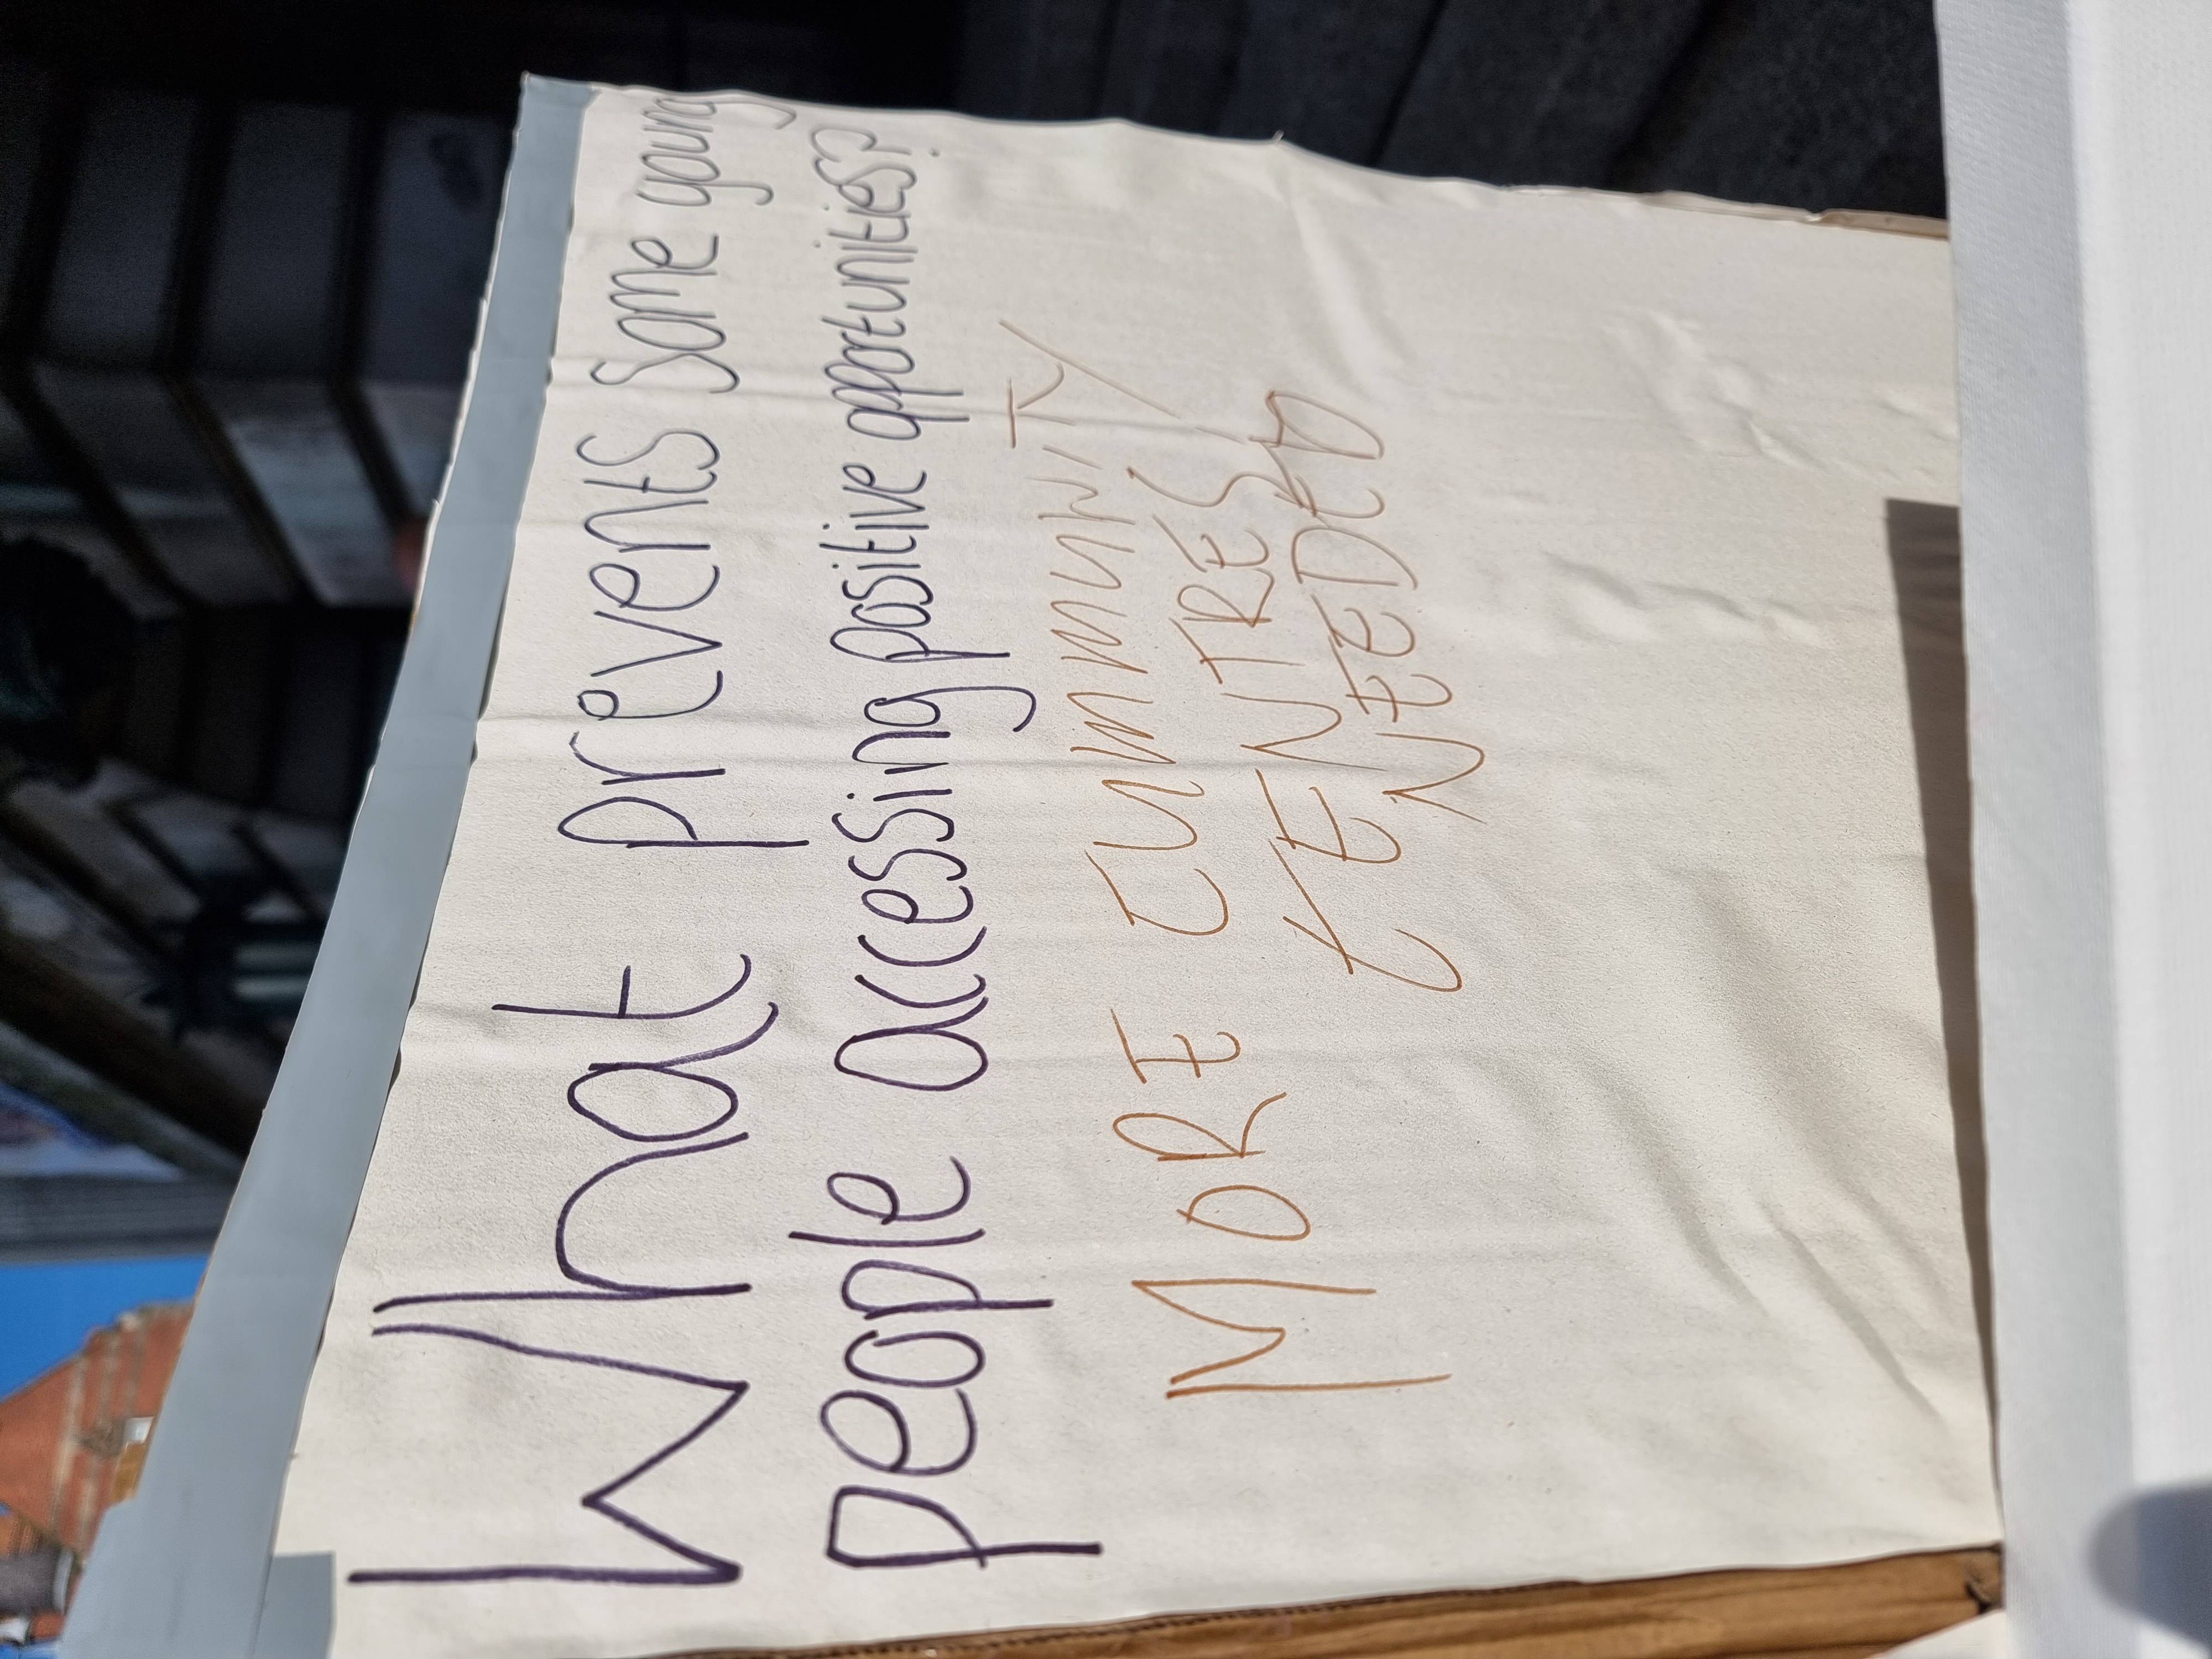 What prevents some young
people accessing positive opportunities?
MORE CUMMUNITY
CENTRES
NEEDED